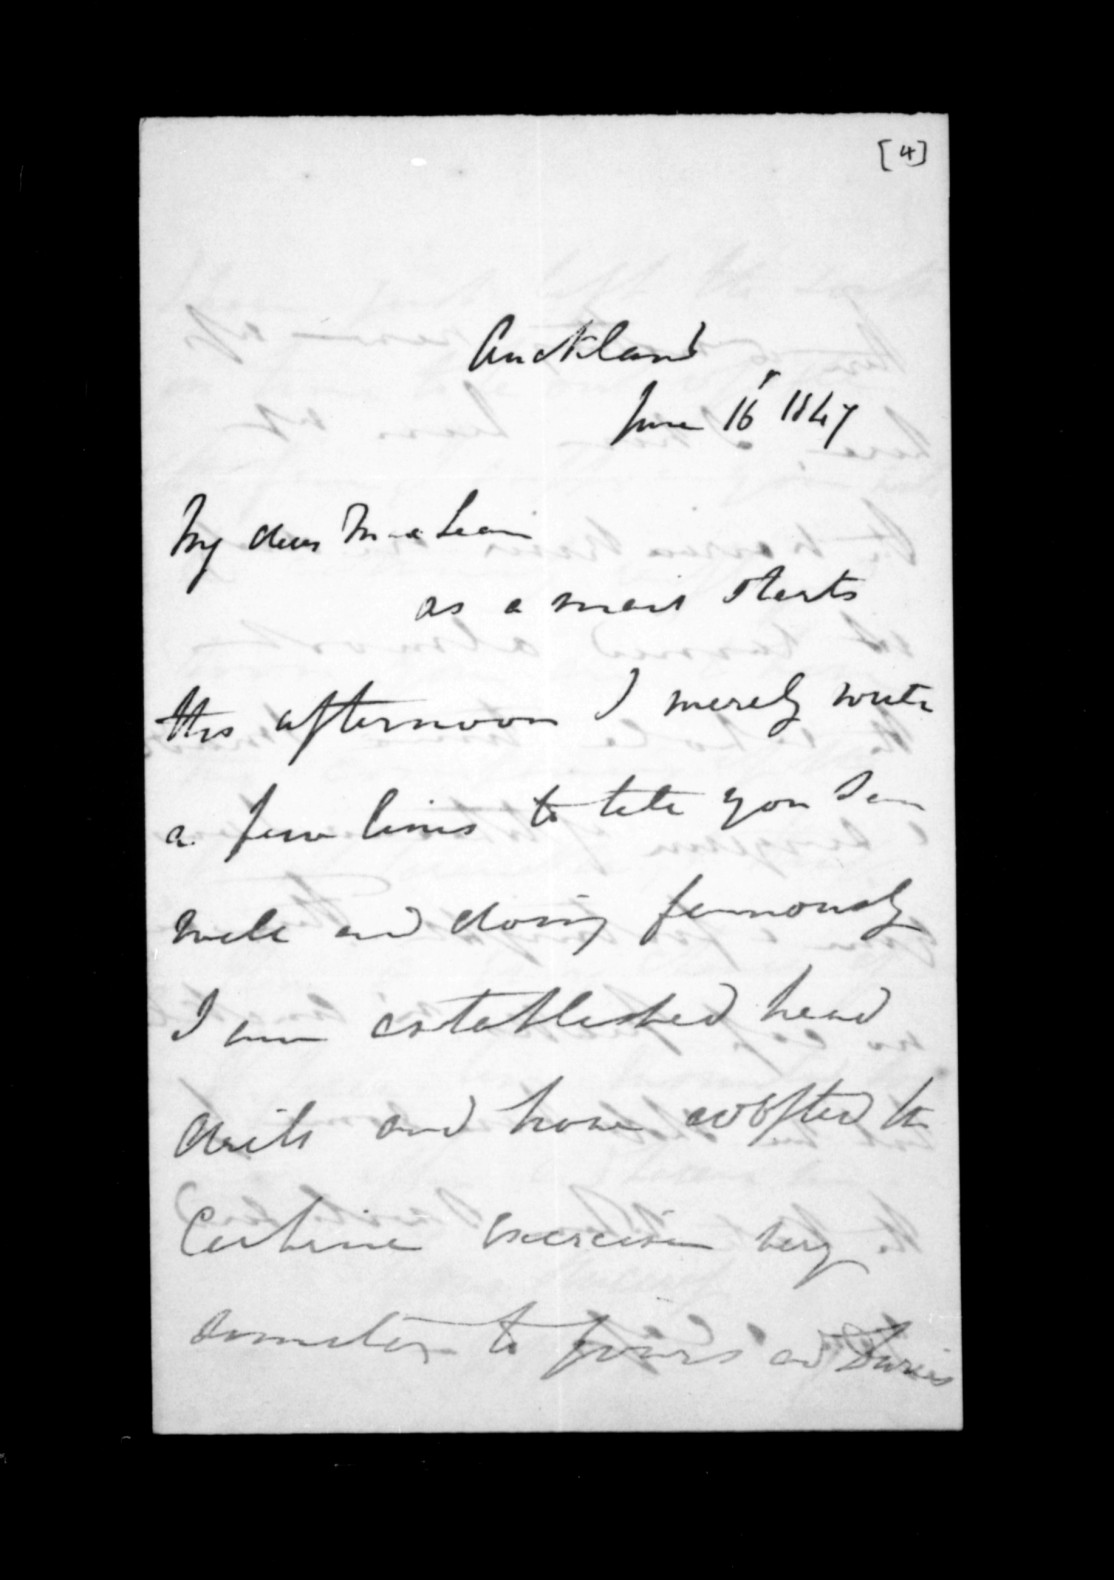 [4]
Auckland
June 16 1847
My dear McLean
as a mail starts
this afternoon I merely write
a few lines to tell you I am
well and doing famously
I am established head
drill and have adopted the
Carbine exercise very
similar to yours and Davis